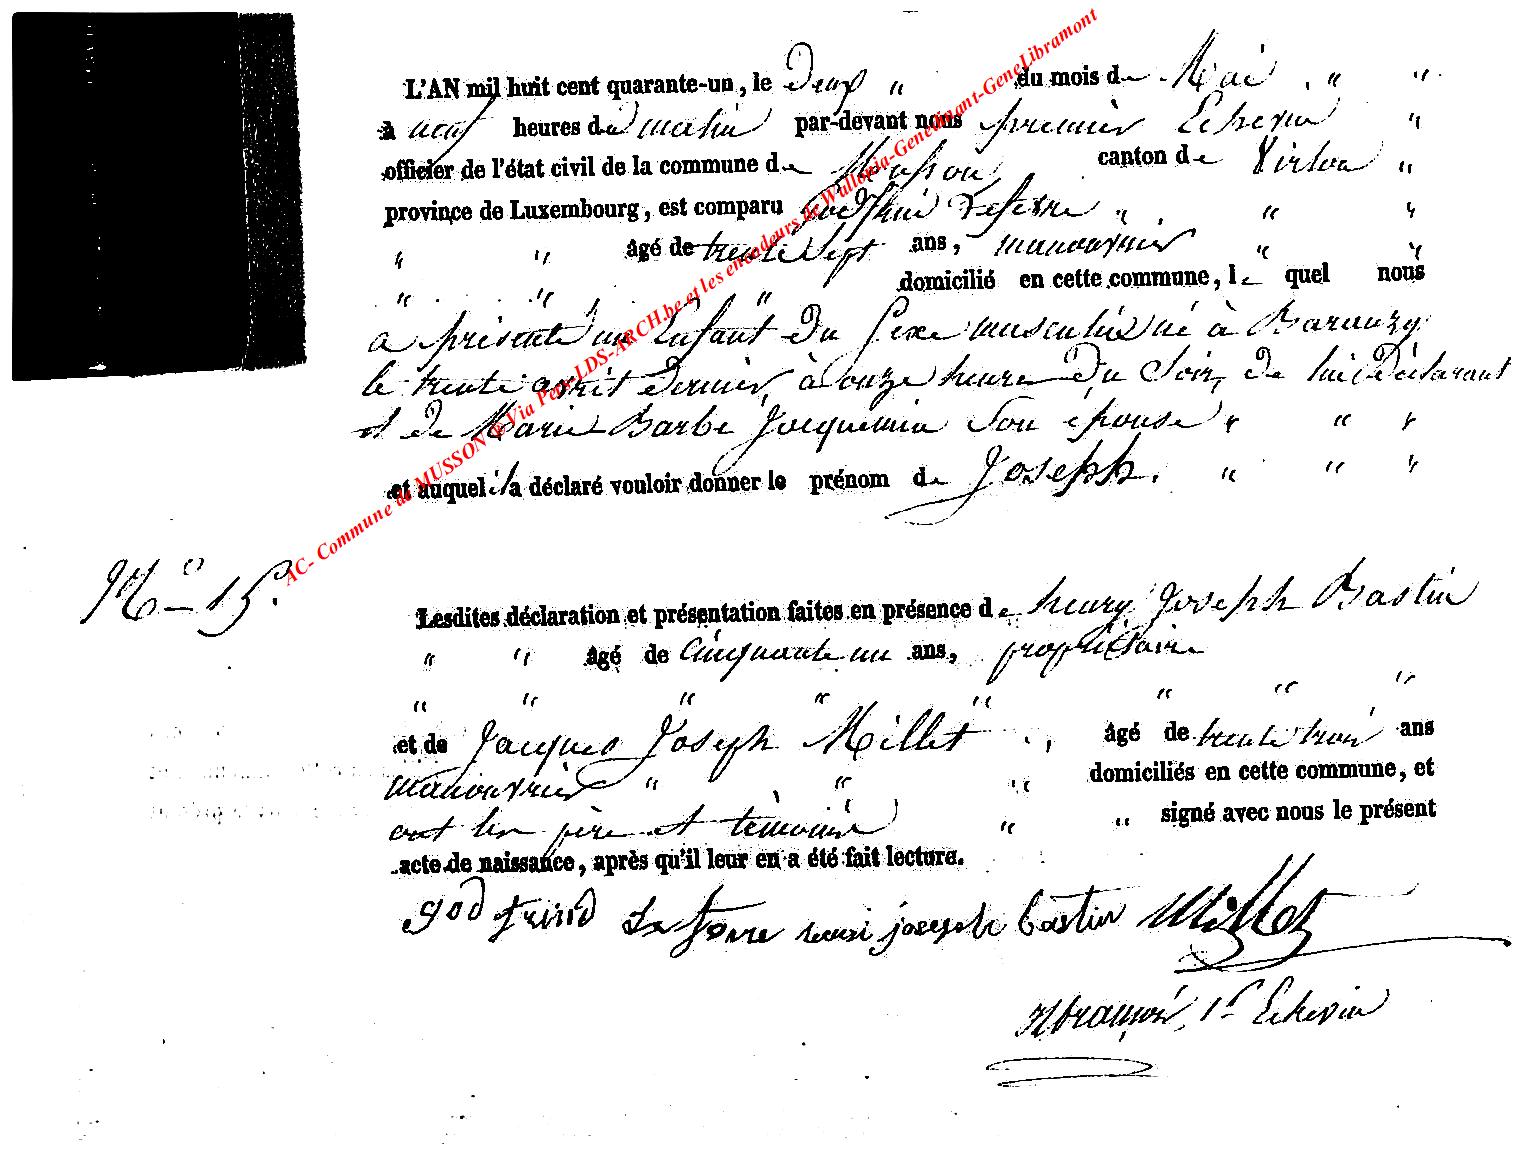 L'AN mil huit cent quarante-un, le Deux " du mois de Mai " "
à neuf heures du matin par-devant nous premier Echevin "
officier de l'état civil de la commune de Musson canton de Virton "
province de Luxembourg, est comparu Godfrind Lefevre " " "
" " âgé de trente Sept ans, manouvrier " "
" " " domicilié en cette commune, le quel nous
a présenté un Enfant Du Sexe masculin né à Baranzy
le trente avril Dernier, à onze heures Du Soir, De lui Déclarant
et de Marie Barbe Jacquemin Son épouse " " "
et auquel il a déclaré vouloir donner le prénom de Joseph. " " "
No 15.
Lesdites déclaration et présentation faites en présence de henry Joseph Bastin
" " âgé de Cinquante un ans, propriétaire
" " " " " " " "
et de Jacques Joseph Millet , âgé de trente trois ans
manouvrier " " " domiciliés en cette commune, et
ont les père et témoins " " signé avec nous le présent
acte de naissance, après qu'il leur en a été fait lecture.
godfrind Lefevre henri joseph bastin Millet
1r Echevin
AC- Commune de MUSSON @ Via Pers-LDS-ARCH.be et les encodeurs de Wallonia-Genedinant-GeneLibramont